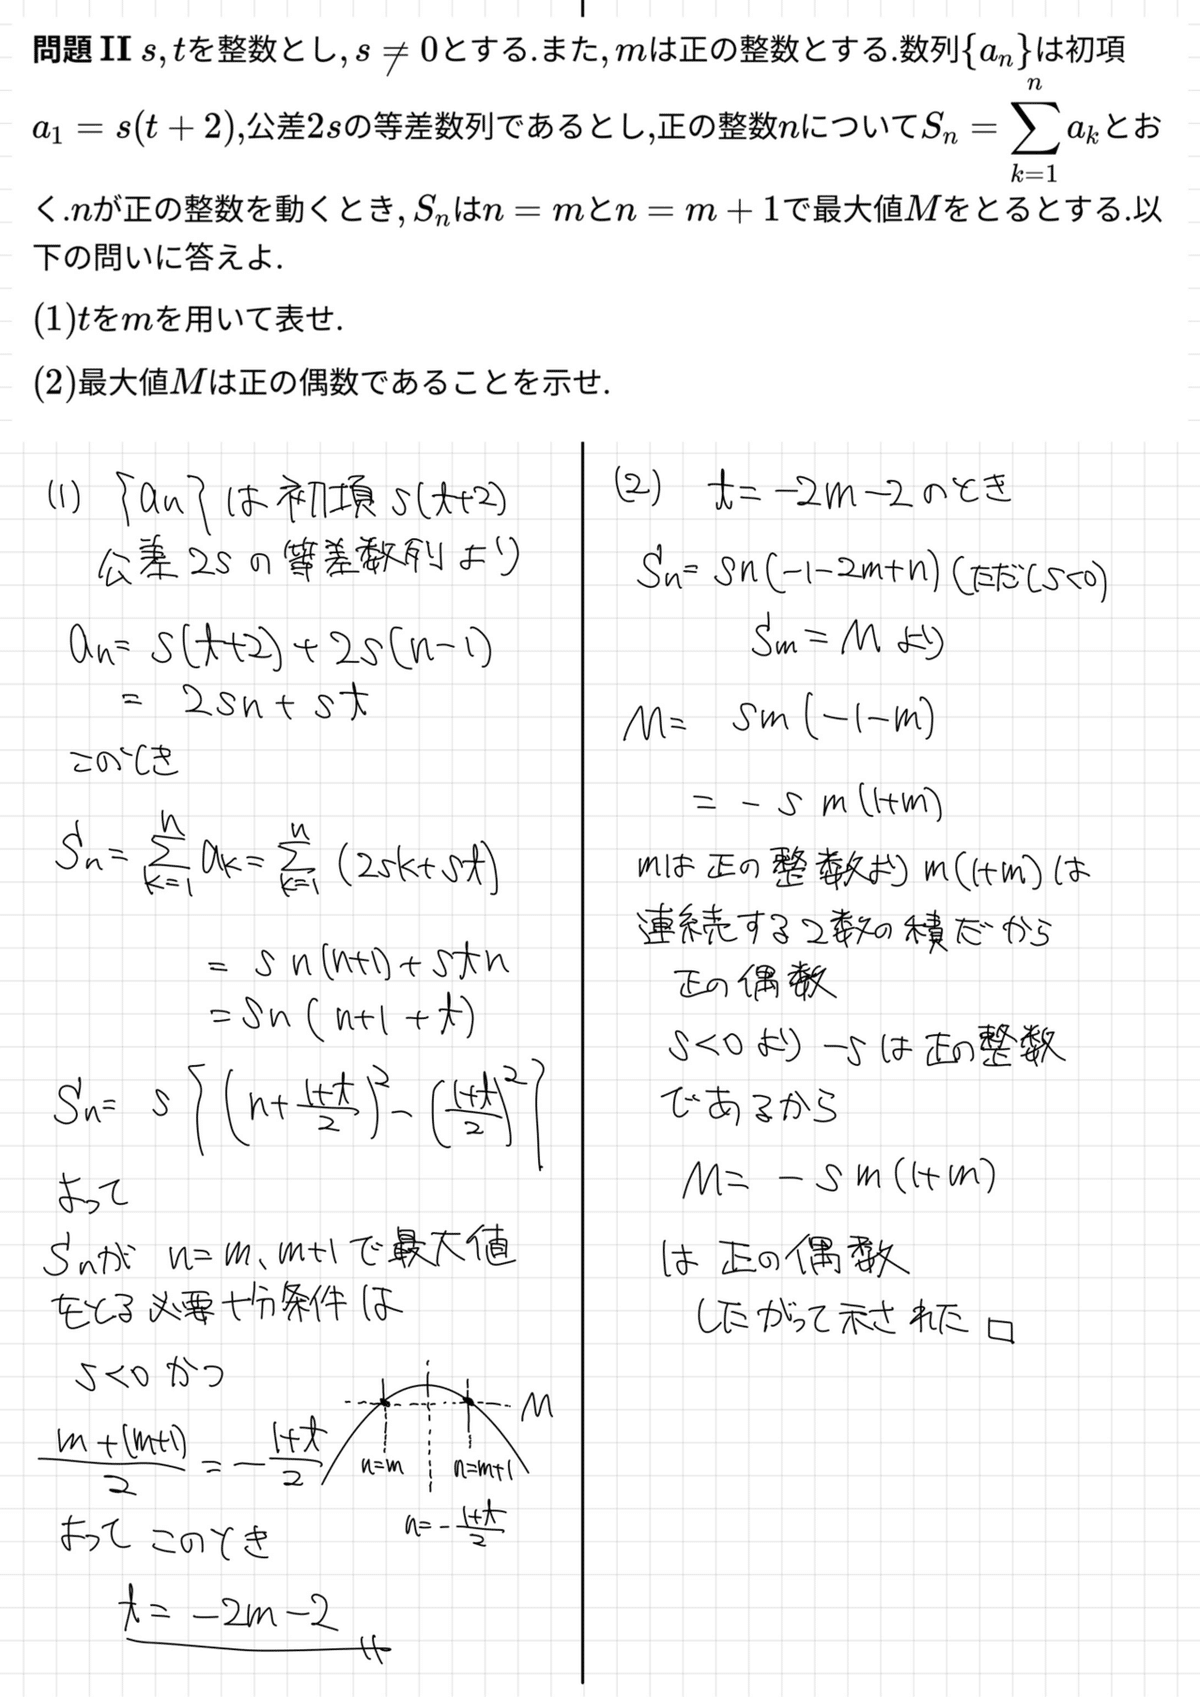 問題 II s, tを整数とし, s ≠ 0とする.また, mは正の整数とする.数列{a_n}は初項
a_1 = s(t + 2),公差2sの等差数列であるとし,正の整数nについてS_n = \sum_{k=1}^{n} a_kとお
く.nが正の整数を動くとき, S_nはn = mとn = m + 1で最大値Mをとるとする.以
下の問いに答えよ.
(1)tをmを用いて表せ.
(2)最大値Mは正の偶数であることを示せ.
(1) {a_n}は初項 s(t+2)
公差 2s の等差数列より
a_n= s(t+2)+2s(n-1)
= 2sn+st
このとき
S_n= \sum_{k=1}^{n} a_k= \sum_{k=1}^{n} (2sk+st)
= sn(n+1)+stn
=sn(n+1+t)
S_n= s{(n+\frac{1+t}{2})^2-(\frac{1+t}{2})^2}
よって
S_nが n=m、m+1で最大値
をとる必要十分条件は
s<0 かつ
\frac{m+(m+1)}{2} = -\frac{1+t}{2}
M
n=m
n=m+1
n=-\frac{1+t}{2}
よって このとき
t= -2m-2
(2) t= -2m-2のとき
S_n= sn(-1-2m+n)(ただしs<0)
S_m=M より
M= sm(-1-m)
= -sm(1+m)
mは正の整数より m(1+m)は
連続する2数の積だから
正の偶数
s<0より -sは正の整数
であるから
M= -sm(1+m)
は 正の偶数
したがって示された □